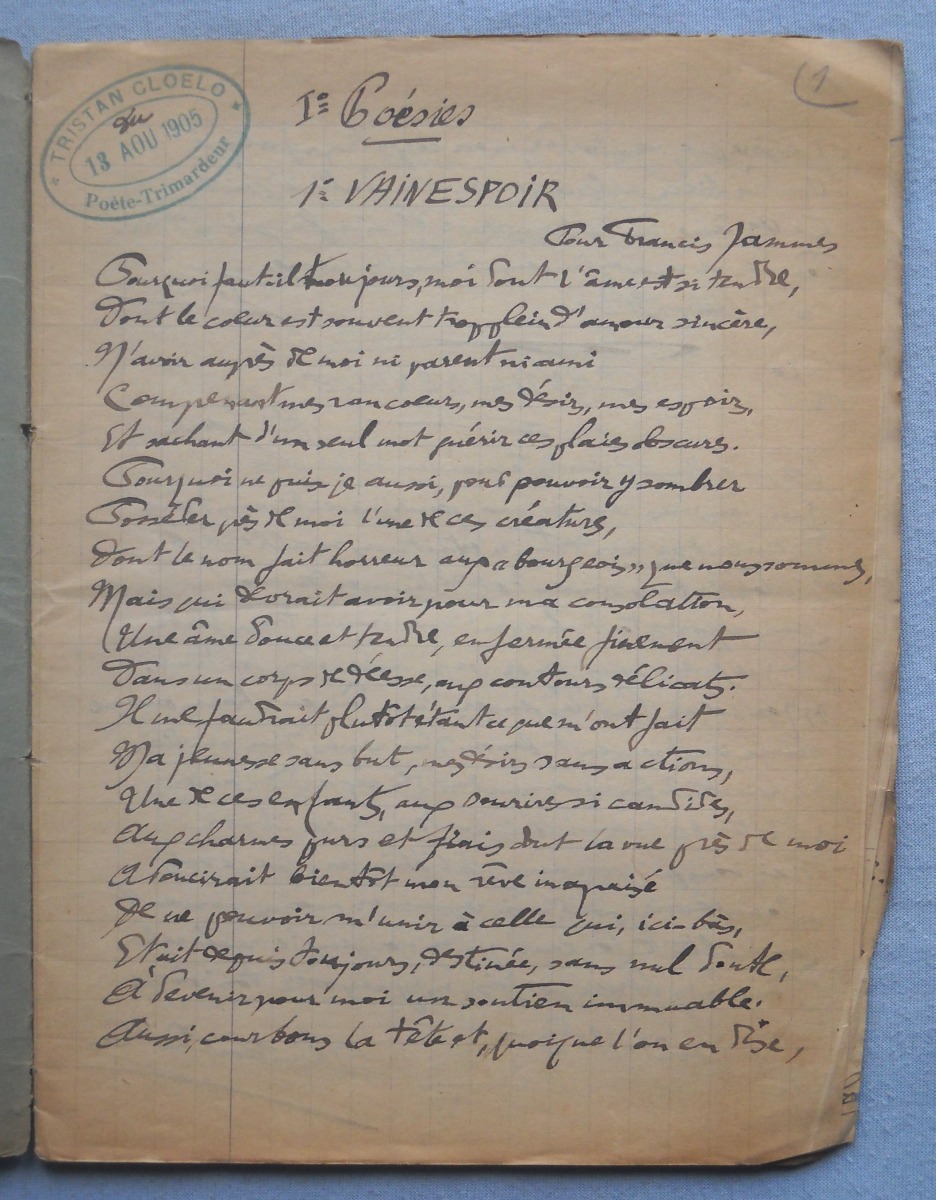 TRISTAN CLOELO
du
13 AOU 1905
Poète-Trimardeur
1
I° Poésies
1° VAIN ESPOIR
Pour Francis Jammes
Pourquoi faut-il toujours, moi dont l'âme est si tendre,
Dont le coeur est souvent trop plein d'amour sincère,
N'avoir auprès de moi ni parent ni ami
Comprenant mes rancoeurs, mes désirs, mes espoirs,
Et sachant d'un seul mot guérir ces plaies obscures.
Pourquoi ne puis je aussi, pour pouvoir y sombrer
Posséder près de moi l'une de ces créatures,
Dont le nom fait horreur aux "bourgeois" que nous sommes,
Mais qui devrait avoir pour ma consolation,
Une âme douce et tendre, enfermée finement
Dans un corps de déesse, aux contours délicats.
Il me faudrait plutôt étant ce que m'ont fait
Ma jeunesse sans but, mes désirs sans actions,
Une de ces enfants, aux sourires si candides,
Aux charmes purs et frais dont la vue près de moi
Adoucirait bientôt mon rêve inapaisé
De ne pouvoir m'unir à celle qui, ici-bas,
Etait depuis toujours, destinée, sans nul doute,
À devenir pour moi un soutien immuable.
Aussi, courbons la tête et, quoique l'on en dise,